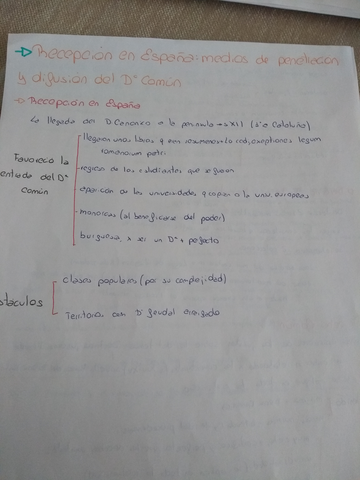 → Recepción en España: medios de penetración
y difusión del Dº Común
→ Recepción en España
↳ llegada del D Canonico a la peninsula → s XII
Favorecio la
entrada del Dº
Común
llegaron unos libros q eran
romanorum petri
regreso de los estudiantes que se fueron
aparicion de las universidades
monarcas (al beneficiarse del poder)
burguesia, x ser un Dº + perfecto
Obstaculos
clases populares (por su complejidad)
Territorios con Dº feudal arraigado